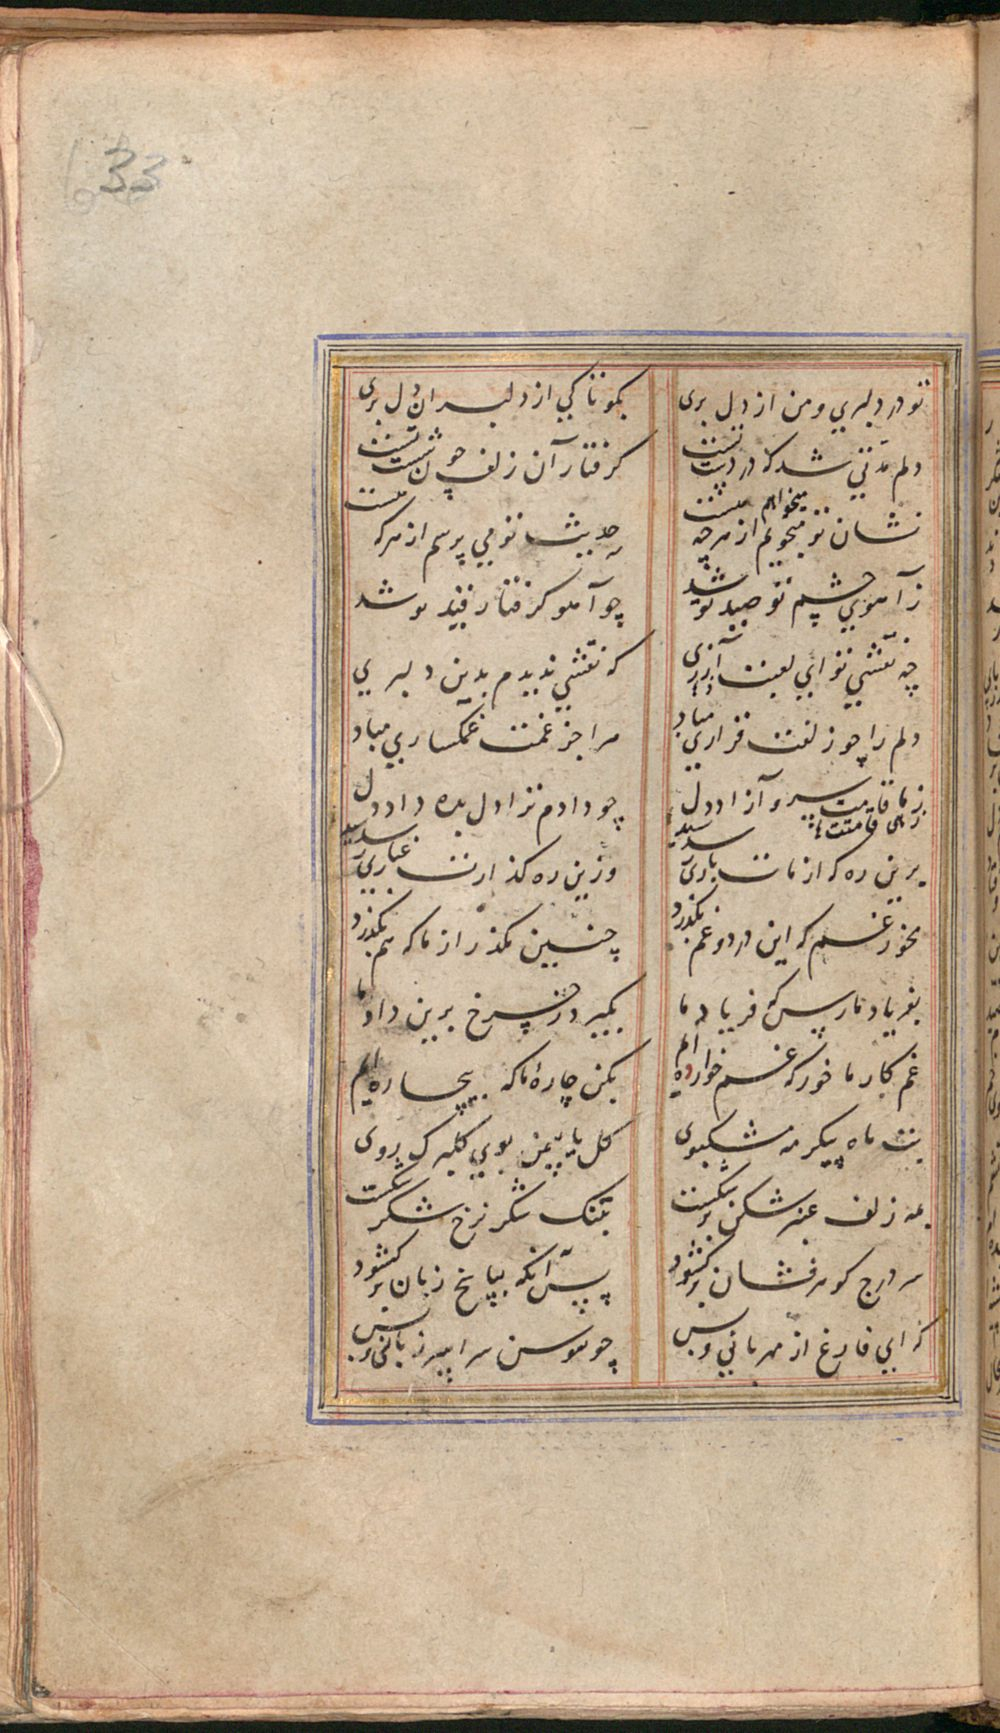 33
تو در دلبری و من از دل بری بکو تا کی از دلبران دل بری
دلم مدتی شد که در دست تست کرفتار آن زلف چون شست تست
نشان تو میجویم از هرچه هست میخواهم حدیث تو می پرسم از هرکه هست
ز آهوی چشم تو صید تو شد چو آهو کرفتار قید تو شد
چه نقشی تو ای لعبت آزری که نقشی ندیدم بدین دلبری
دلم را چو زلفت قراری مباد مرا جز غمت غمکساری مباد
ز ما قامت سرو آزاد دل چو دادم ترا دل بده داد دل
زهی قامتت
برین ره که از مات باری رسید وزین ره کذارت غباری رسید
بخور غم که این درد و غم بکذرد چنین مکذر از ما که هم بکذرد
بفریاد ما رس که فریاد ما بکیرد درین چرخ برین داد ما
غم کار ما خور که غم خواره ایم بکن چاره ما که بیچاره ایم
بت ماه پیکر مه مشکبوی کل یاسمن بوی کلبرک روی
مه زلف عنبر شکن بر شکست بتنک شکر نرخ شکر شکست
سر درج کوهر فشان بر کشود پس آنکه بپاسخ زبان بر کشود
که ای فارغ از مهربانی و بس چو سوسن سراسر زبانی و بس